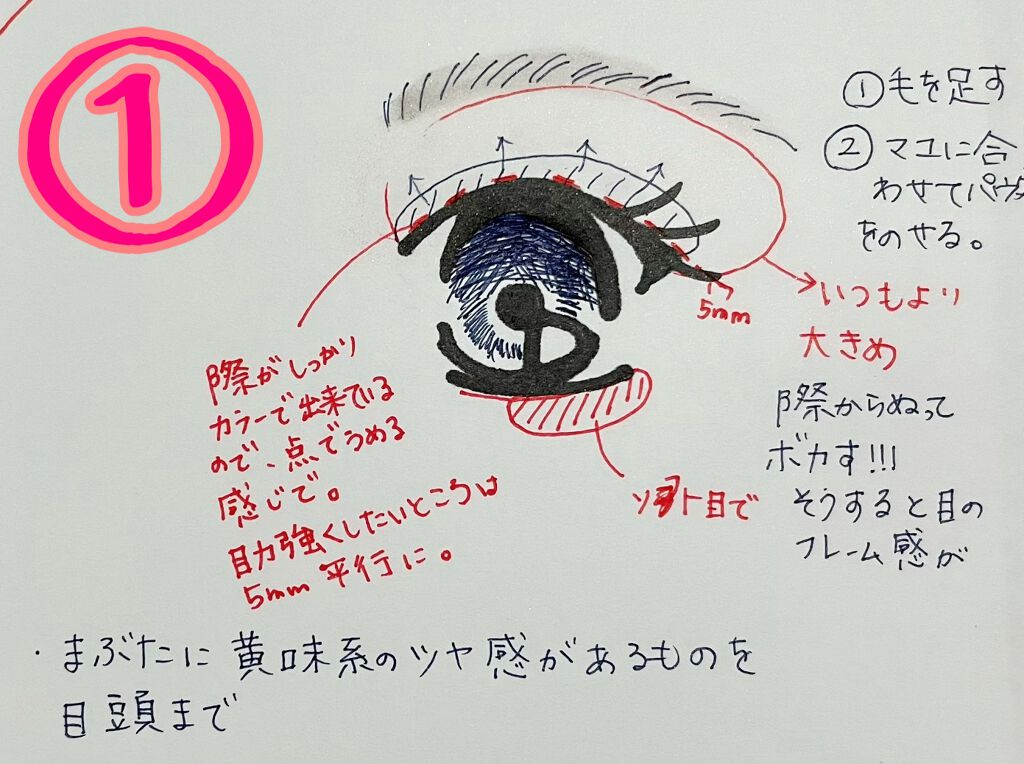 ①
①毛を足す
② マユに合
わせてパウダ
をのせる。
5mm
いつもより
大きめ
際がしっかり
カラーで出来ている
ので、点でうめる
感じで。
目力強くしたいところは
5mm 平行に。
際からぬって
ボカす!!!
そうすると目の
フレーム感が
ソフト目で
・まぶたに黄味系のツヤ感があるものを
目頭まで